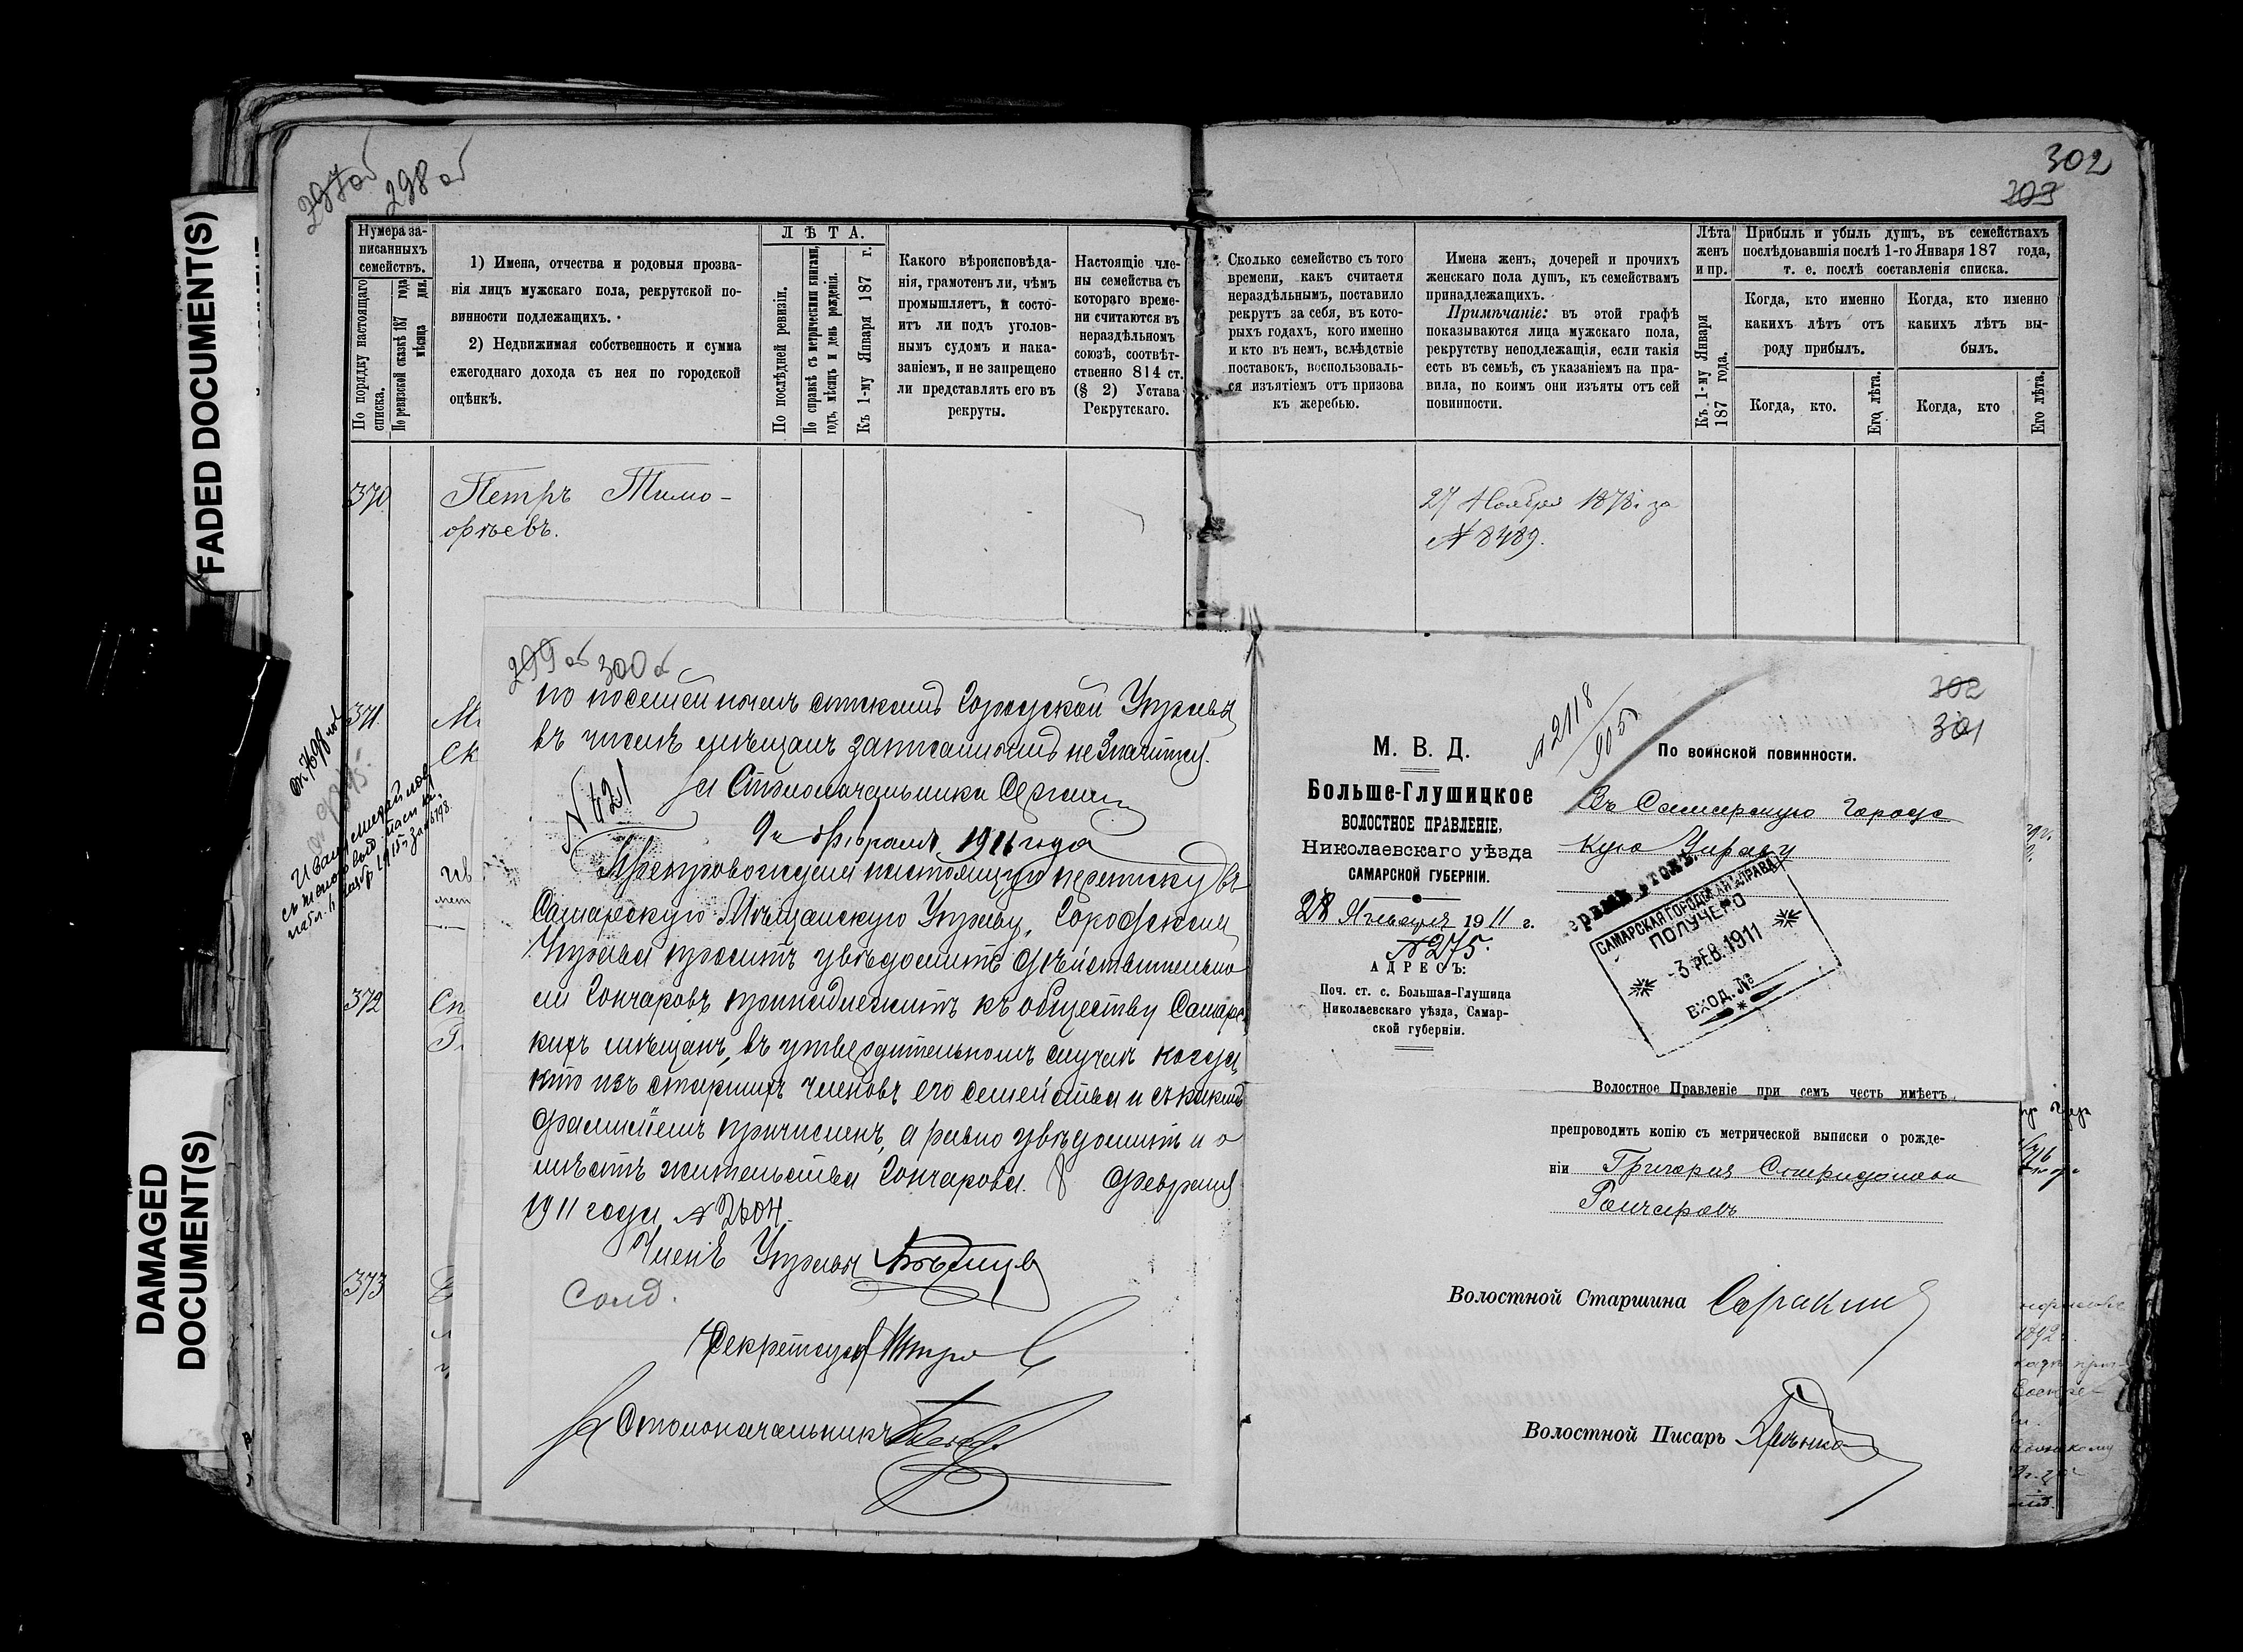 FADED DOCUMENT(S)
DAMAGED
DOCUMENT(S)
297 об
298 об
302
303
Нумера за-
писанныхъ
семействъ.
По порядку настоящаго
списка.
По ревизской сказкѣ 187 года
мѣсяца дня.
1) Имена, отчества и родовыя прозва-
нія лицъ мужскаго пола, рекрутской по-
винности подлежащихъ.
2) Недвижимая собственность и сумма
ежегоднаго дохода съ нея по городской
оцѣнкѣ.
ЛѢТА.
По послѣдней ревизіи.
По справкѣ съ метрическими книгами,
годъ, мѣсяцъ и день рожденія.
Къ 1-му Января 187 г.
Какого вѣроисповѣда-
нія, грамотенъ ли, чѣмъ
промышляетъ, и состо-
итъ ли подъ уголов-
нымъ судомъ и нака-
заніемъ, и не запрещено
ли представлять его въ
рекруты.
Настоящіе чле-
ны семейства съ
котораго време-
ни считаются въ
нераздѣльномъ
союзѣ, соотвѣт-
ственно 814 ст.
(§ 2) Устава
Рекрутскаго.
Сколько семейство съ того
времени, какъ считаетя
нераздѣльнымъ, поставило
рекрутъ за себя, въ кото-
рыхъ годахъ, кого именно
и кто въ немъ, вслѣдствіе
поставокъ, воспользоваль-
ся изъятіемъ отъ призова
къ жеребью.
Имена женъ, дочерей и прочихъ
женскаго пола душъ, къ семействамъ
принадлежащихъ.
Примѣчаніе: въ этой графѣ
показываются лица мужскаго пола,
рекрутству неподлежащія, если такія
есть въ семьѣ, съ указаніемъ на пра-
вила, по коимъ они изъяты отъ сей
повинности.
Лѣта
женъ
и пр.
Къ 1-му Января
187 года.
Прибыль и убыль душъ, въ семействахъ
послѣдовавшія послѣ 1-го Января 187 года,
т. е. послѣ составленія списка.
Когда, кто именно
какихъ лѣтъ отъ
роду прибылъ.
Когда, кто именно
какихъ лѣтъ вы-
былъ.
Когда, кто.
Его лѣта.
Когда, кто
Его лѣта.
370
Петръ Тимо-
фѣевъ.
27 Ноября 1878 г. за
№ 8489.
371.
372
373
299 об 300 об
по посемейнымъ спискамъ Городской Управы
въ числѣ мѣщанъ записаннымъ не значится.
За Столоначальника
№ 621
9го февраля 1911 года
Препровождая настоящую переписку въ
Самарскую Мѣщанскую Управу, Городская
Управа проситъ увѣдомить дѣйствительно
ли Гончаровъ принадлежитъ къ обществу Самарс-
кихъ мѣщанъ, въ утвердительномъ случаѣ когда,
кто изъ старшихъ членовъ его семейства и съ какимъ
фамиліемъ причисленъ, а равно увѣдомить и о
мѣстѣ жительства Гончарова. 8 Февраля
1911 года № 2604.
Членъ Управы
Секретарь
За Столоначальникъ
302
301
№ 2118
905
М. В. Д.
Больше-Глушицкое
ВОЛОСТНОЕ ПРАВЛЕНІЕ,
Николаевскаго уѣзда
САМАРСКОЙ ГУБЕРНІИ.
28 Января 1911 г.
№ 275.
АДРЕСЪ:
Поч. ст. с. Большая-Глушица
Николаевскаго уѣзда, Самар-
ской губерніи.
По воинской повинности.
Въ Самарскую Городс
кую Управу
САМАРСКАЯ ГОРОДСКАЯ УПРАВА
ПОЛУЧЕНО
-3 ФЕВ. 1911
ВХОД. №
Волостное Правленіе при семъ честь имѣетъ
препроводить копію съ метрической выписки о рожде-
ніи Григорія Спиридонова
Гончаровъ
Волостной Старшина
Волостной Писарь